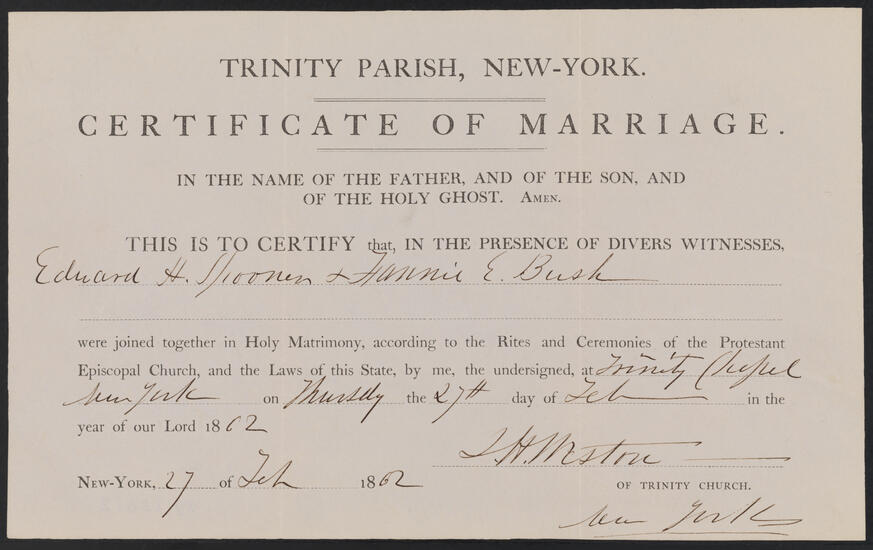 TRINITY PARISH, NEW-YORK.
CERTIFICATE OF MARRIAGE.
IN THE NAME OF THE FATHER, AND OF THE SON, AND
OF THE HOLY GHOST. AMEN.
THIS IS TO CERTIFY that, IN THE PRESENCE OF DIVERS WITNESSES,
Edward H. Spooner & Fannie E. Bush
were joined together in Holy Matrimony, according to the Rites and Ceremonies of the Protestant
Episcopal Church, and the Laws of this State, by me, the undersigned, at Trinity Chapel
New York on Thursday the 27th day of Feb in the
year of our Lord 1862
S. H. Weston
NEW-YORK, 27 of Feb 1862
OF TRINITY CHURCH.
New York